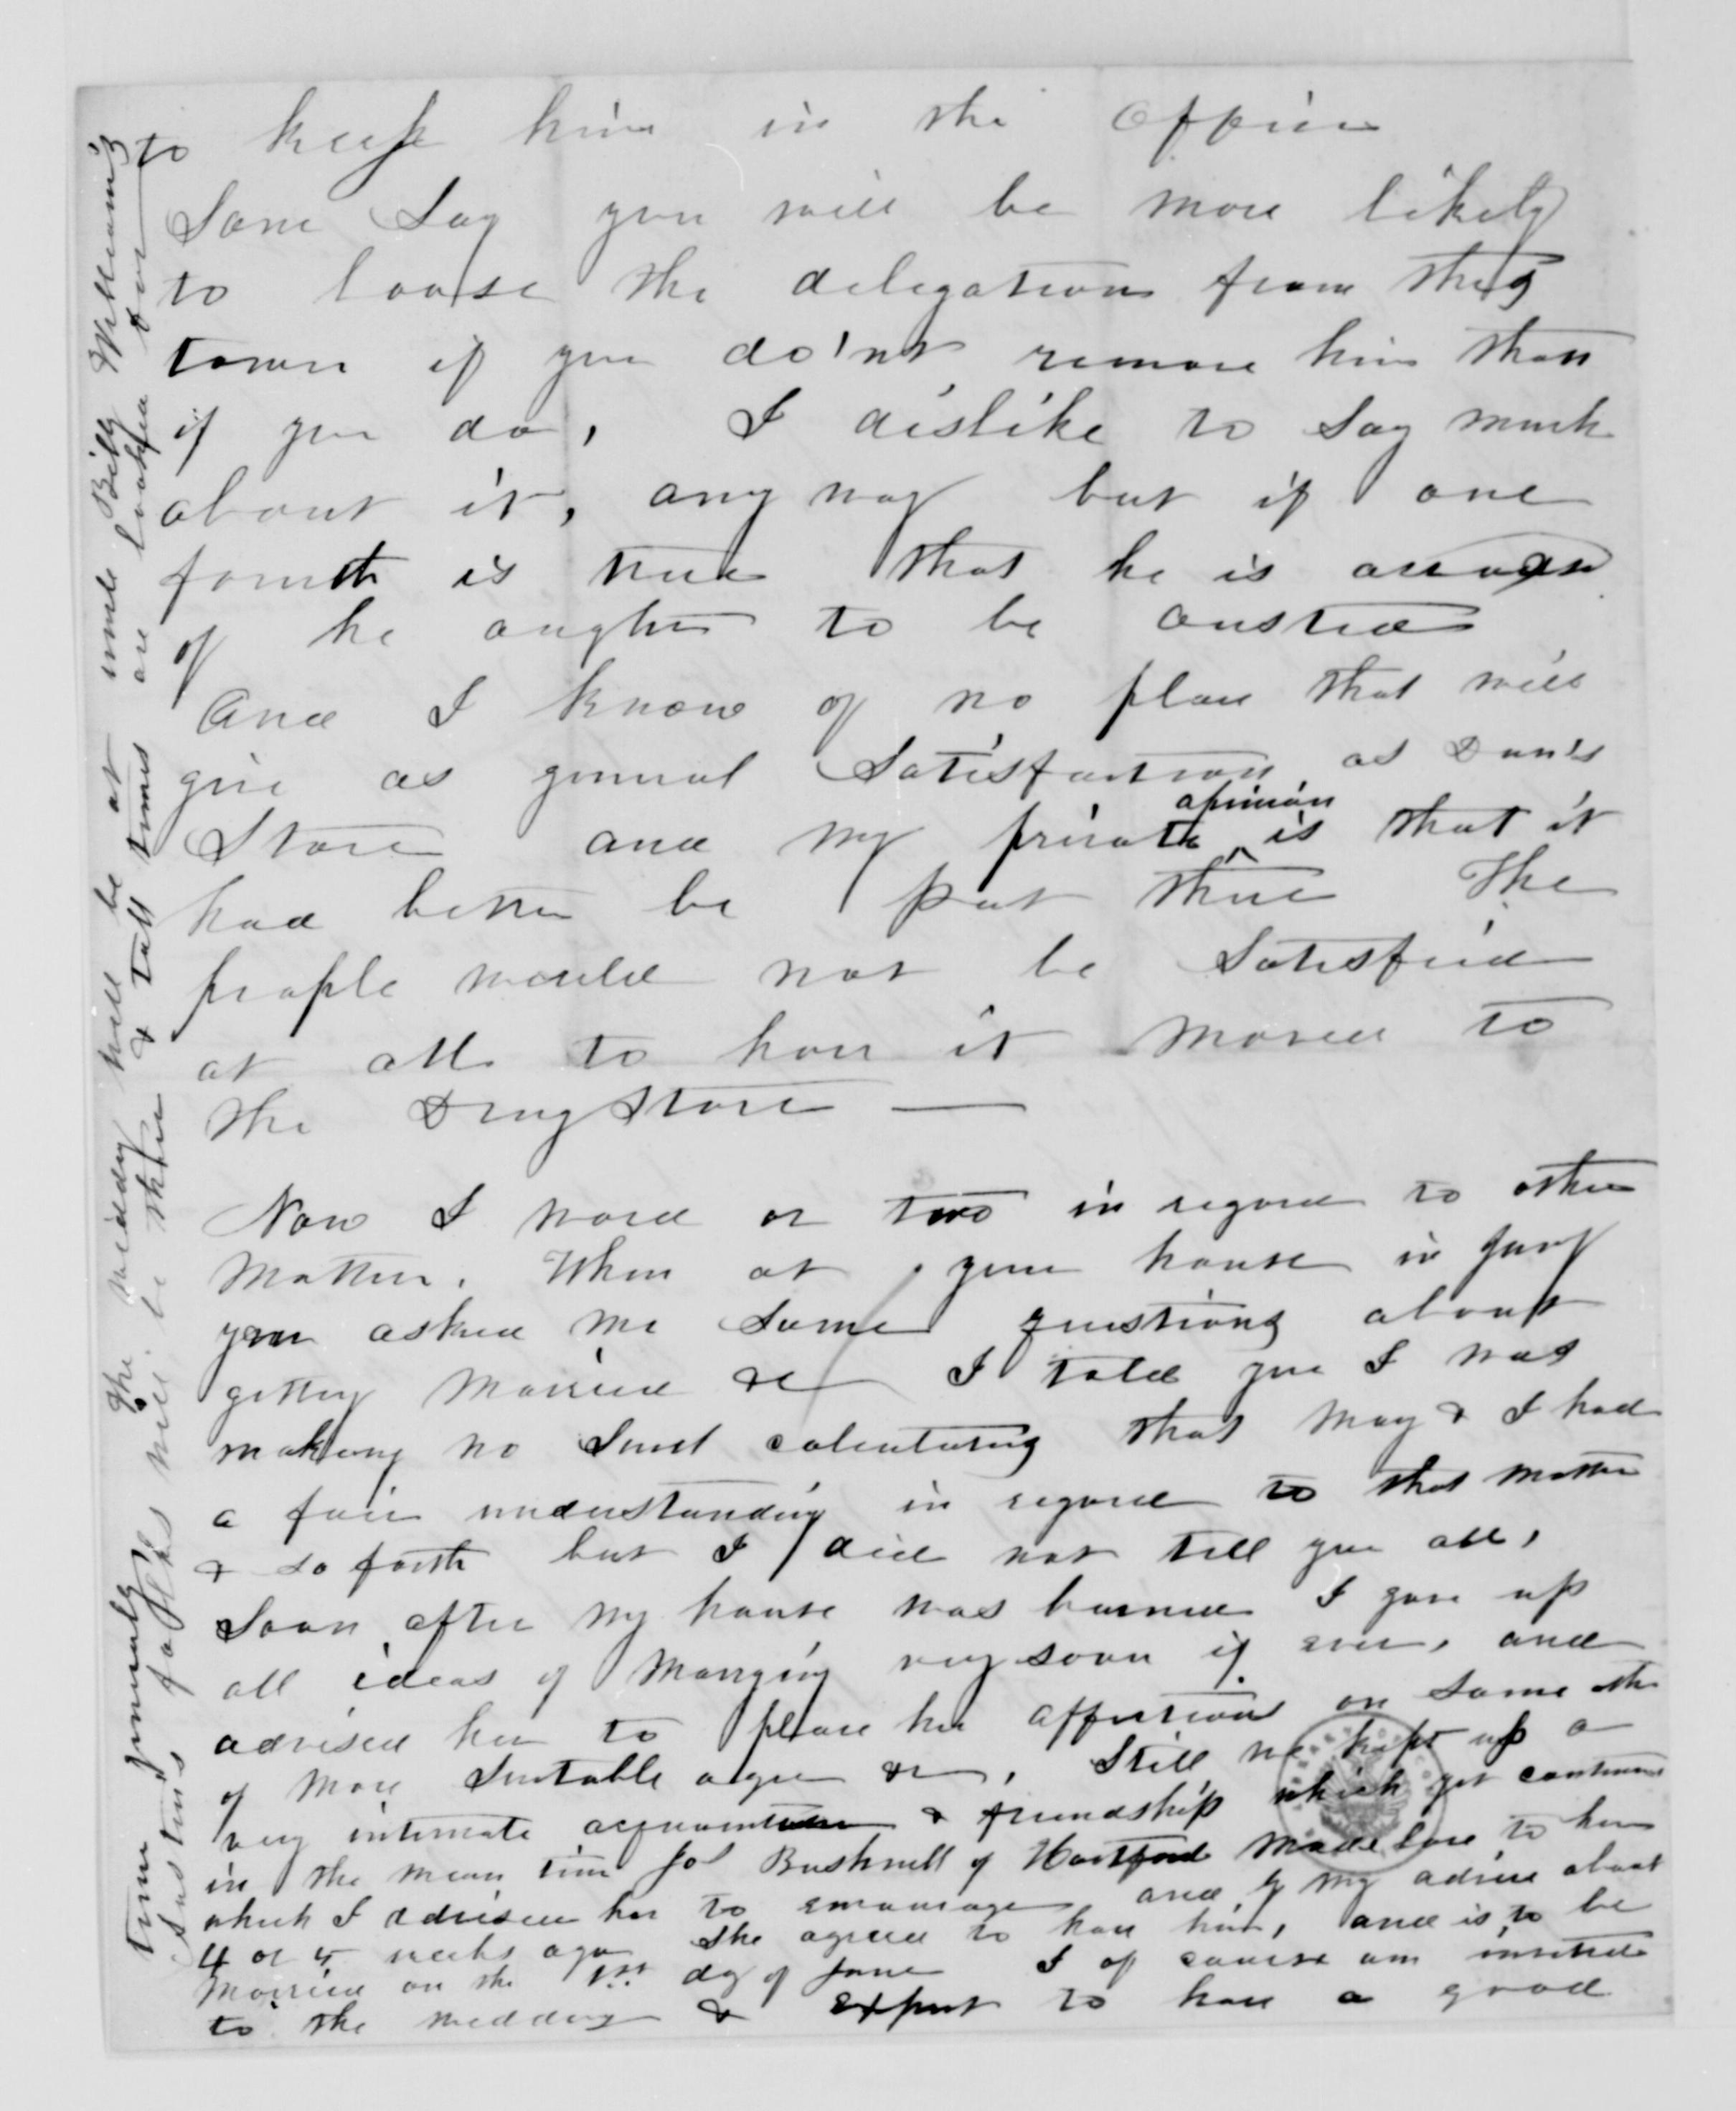 to keep him in the office
Some Say you will be more likely
to loose the delegation from this
town if you do'nt remove him than
if you do, I dislike to Say much
about it, any way but if one
fourth is true that he is accused
of he aught to be ousted
And I know of no plan that will
give as general Satisfaction as Dan's
Store and my private opinion is that it
had better be put there The
people would not be Satisfied
at all to have it moved to
the Drug Store —
Now I word or two in regard to other
Matters. When at your house in Jany
you asked me Some questions about
getting Married &c I told you I was
making no Such calculations that May & I had
a fair understanding in regard to that matter
& so forth but I did not tell you all,
Soon after my house was burned I gave up
all ideas of Marrying very soon if ever, and
advised her to place her affections on Some other
of more Suitable age &c, Still we kept up a
very intimate acquaintance & friendship which yet continues
in the mean time Jos Bushnell of Hartford made love to her
which I advised her to encourage and by my advice about
4 or 5 weeks ago She agreed to have him, and is to be
Married on the 1st day of June I of course am invited
to the wedding & Expect to have a good
time generally The wedding will be at uncle Billy Williams
Justins folks will be there & tall times are looked for